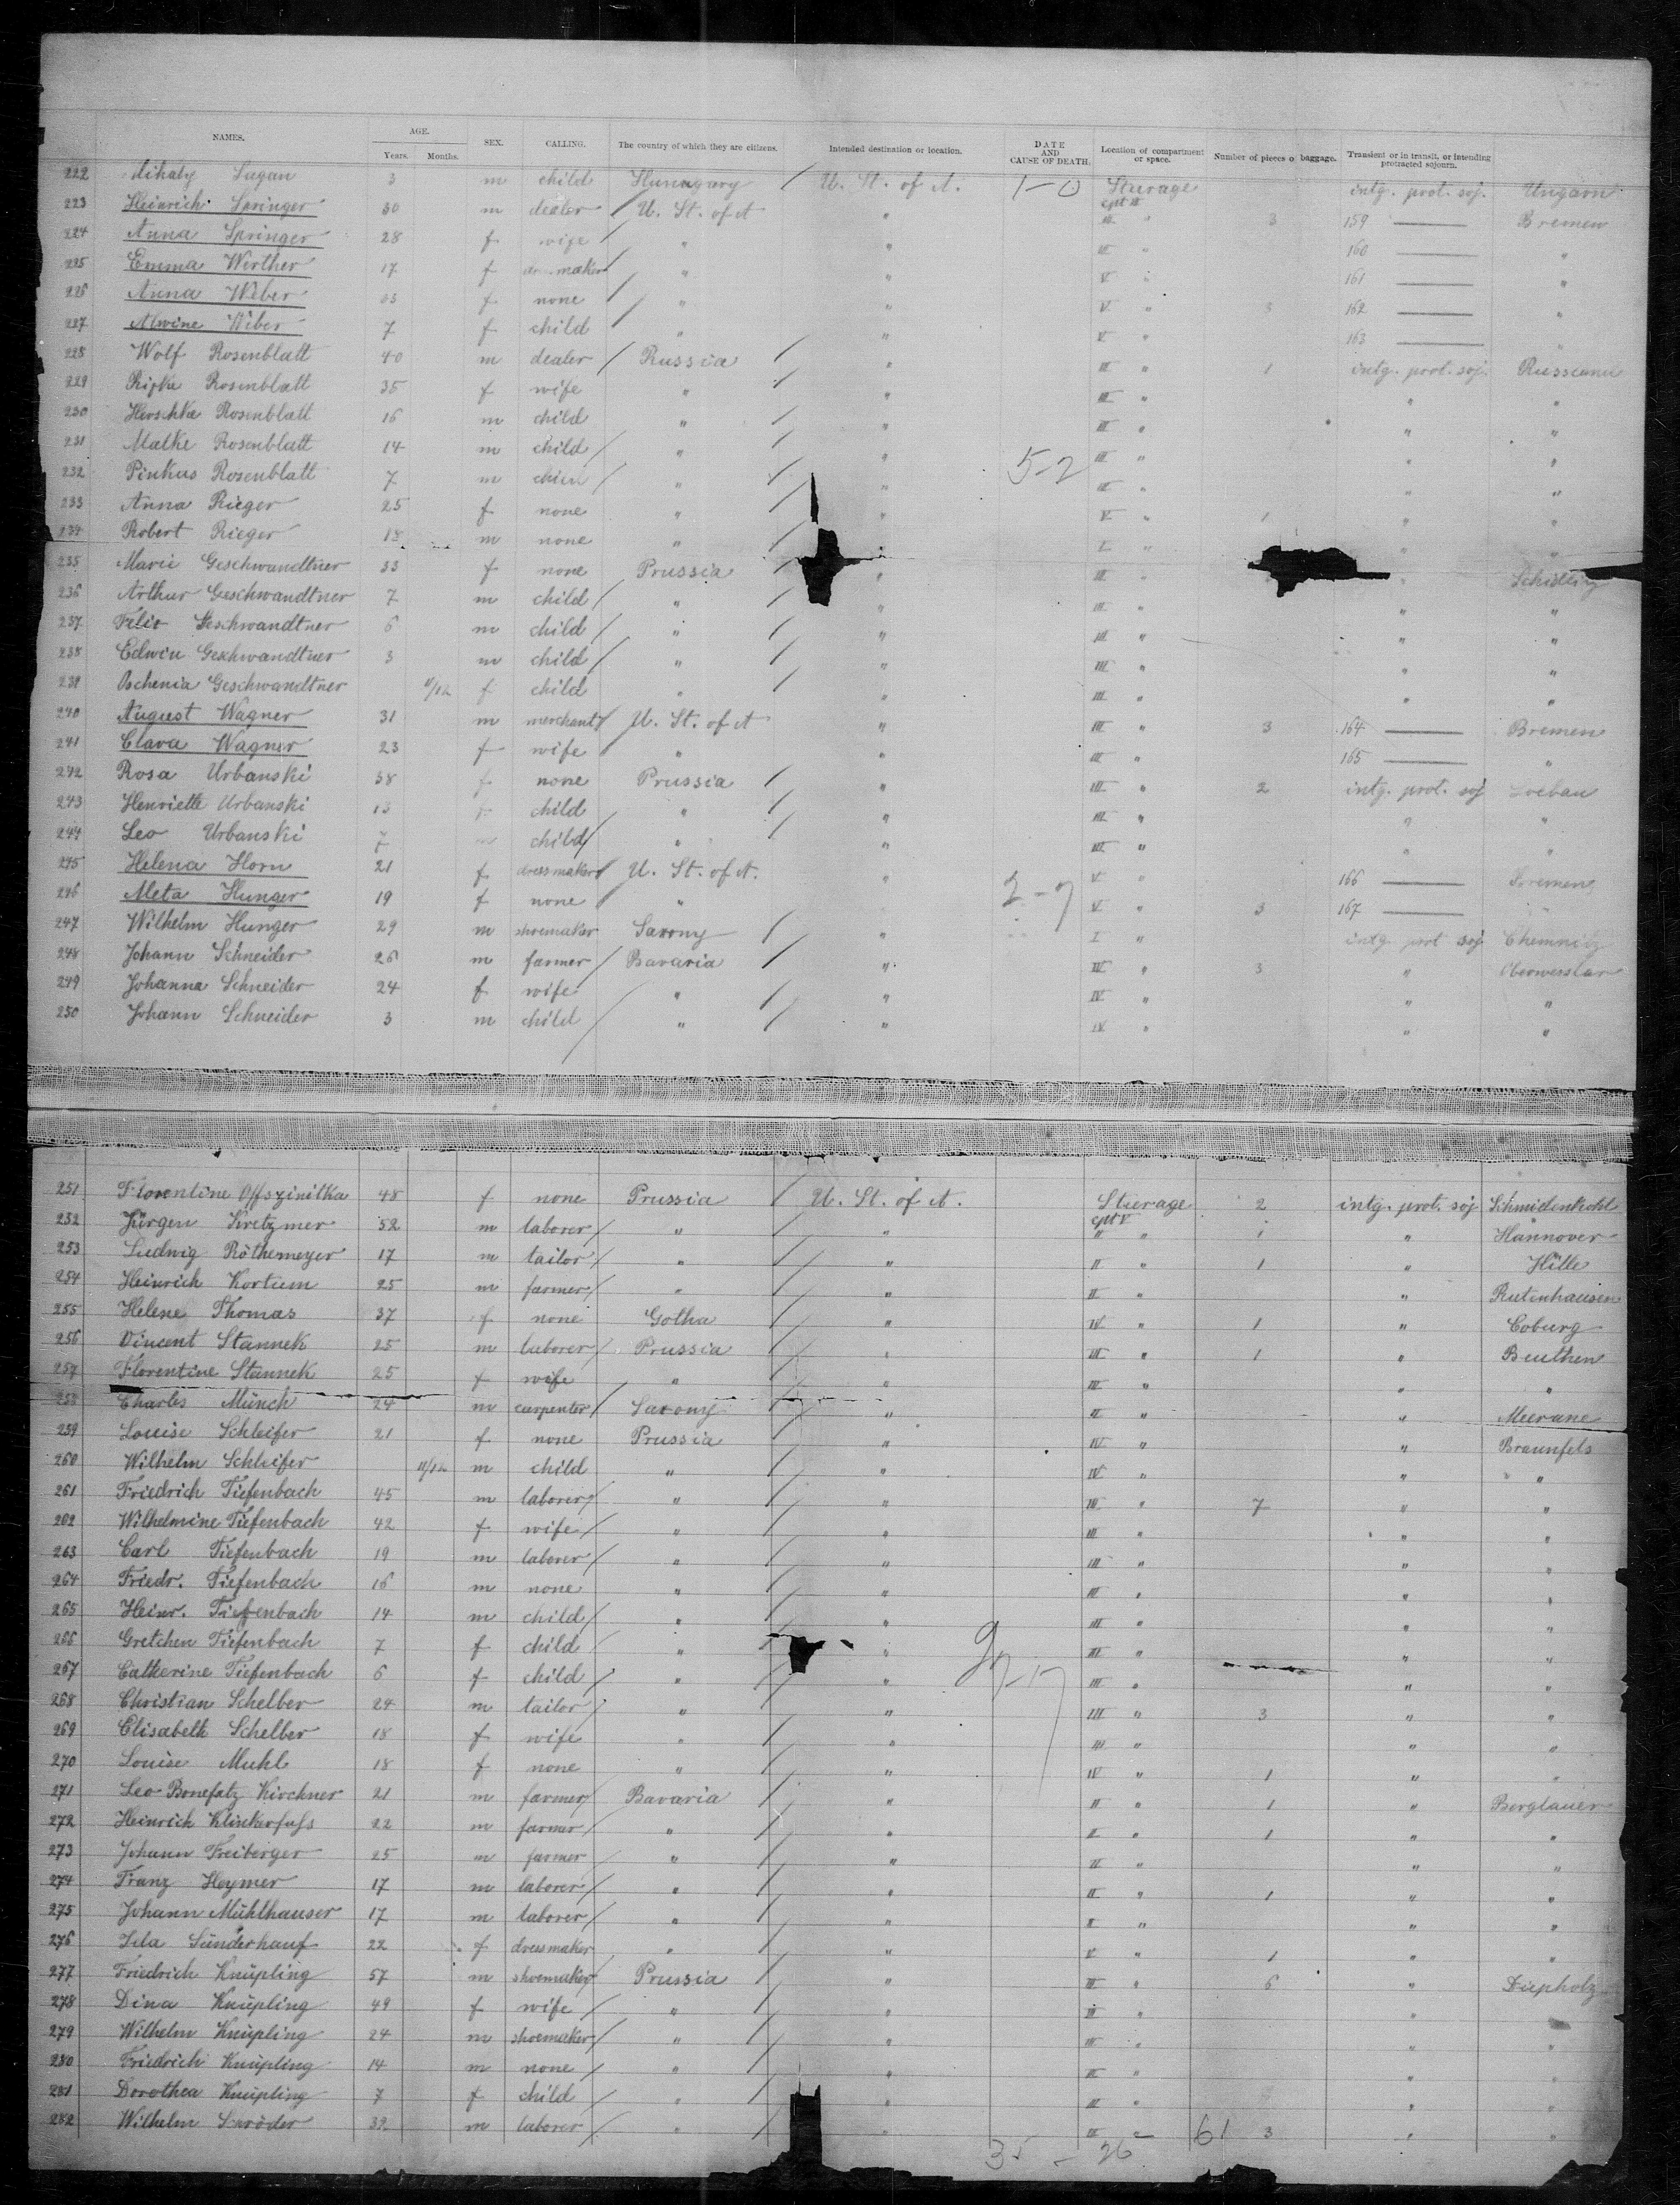 NAMES. AGE. Years. Months. SEX. CALLING. The country of which they are citizens. Intended destination or location. DATE AND CAUSE OF DEATH. Location of compartment or space. Number of pieces of baggage. Transient or in transit, or intending protracted sojourn.
222 Mihaly Sagan 3 m child Hunugary U. St. of A. 1-0 Steerage intg. prot. soj. Ungarn
223 Heinrich Springer 30 m dealer U. St. of A " cpt III " 3 159 — Bremen
224 Anna Springer 28 f wife " " III " 160 — "
225 Emma Werther 17 f maker " " V " 161 — "
226 Anna Weber f none " " V " 3 162 — "
227 Alwine Weber 7 f child " " V " 163 — "
228 Wolf Rosenblatt 40 m dealer Russia " III " 1 intg. prot. soj.
229 Rifke Rosenblatt 35 f wife " " III " " "
230 Hirschke Rosenblatt 16 m child " " III " " "
231 Malke Rosenblatt 14 m child " " III " " "
232 Pinkus Rosenblatt 7 m child " " 5-2 III " " "
233 Anna Rieger 25 f none " " V " 1 " "
234 Robert Rieger 18 m none " " I " " "
235 Marie Geschwandtner 33 f none Prussia " III " "
236 Arthur Geschwandtner 7 m child " " III " " "
237 Felix Geschwandtner 6 m child " " III " " "
238 Edwin Geschwandtner 3 m child " " III " " "
239 Oschenia Geschwandtner 11/12 f child " " III " " "
240 August Wagner 31 m merchant U. St. of A " III " 3 164 — Bremen
241 Clara Wagner 23 f wife " " III " 165 — "
242 Rosa Urbanski 38 f none Prussia " III " 2 intg. prot. soj Loebau
243 Henriette Urbanski 13 f child " " III " " "
244 Leo Urbanski 7 m child " " III " " "
245 Helena Horn 21 f dressmaker U. St. of A. " V " 166 — Bremen
246 Meta Hunger 19 f none " 2-7 V " 3 167 — "
247 Wilhelm Hunger 29 m shoemaker Saxony " I " intg prot soj Chemnitz
248 Johann Schneider 26 m farmer Bavaria " IV " 3 "
249 Johanna Schneider 24 f wife " " IV " " "
250 Johann Schneider 3 m child " " IV " " "
251 Florentine Offszinitka 48 f none Prussia U. St. of A. Steerage 2 intg. prot. soj
252 Jürgen Kretzmer 52 m laborer " " cpt V II " 1 " Hannover
253 Ludwig Röthemeyer 17 m tailor " " II " 1 " Hille
254 Heinrich Kortum 25 m farmer " " II " "
255 Helene Thomas 37 f none Gotha " IV " 1 " Coburg
256 Vincent Stannek 25 m laborer Prussia " III " 1 " Beuthen
257 Florentine Stannek 25 f wife " " III " " "
258 Charles Münch 24 m carpenter Saxony " II " " Meerane
259 Louise Schleifer 21 f none Prussia " IV " " Braunfels
260 Wilhelm Schleifer 11/12 m child " " IV " " "
261 Friedrich Tiefenbach 45 m laborer " " III " 7 " "
262 Wilhelmine Tiefenbach 42 f wife " " III " " "
263 Carl Tiefenbach 19 m laborer " " III " " "
264 Friedr. Tiefenbach 16 m none " " III " " "
265 Heinr. Tiefenbach 14 m child " " III " " "
266 Gretchen Tiefenbach 7 f child " " III " " "
267 Catherine Tiefenbach 6 f child " " III " " "
268 Christian Schelber 24 m tailor " " III " 3 " "
269 Elisabeth Schelber 18 f wife " " III " " "
270 Louise Muhl 18 f none " " IV " 1 " "
271 Leo Bonefatz Kirchner 21 m farmer Bavaria " II " 1 " Berglauer
272 Heinrich Klinkerfuss 22 m farmer " " II " 1 " "
273 Johann Freiberger 25 m farmer " " II " " "
274 Franz Heymer 17 m laborer " " II " 1 " "
275 Johann Mühlhauser 17 m laborer " " II " " "
276 Ida Sünderhauf 22 f dressmaker " " V " 1 " "
277 Friedrich Knüpling 57 m shoemaker Prussia " III " 6 " Diepholz
278 Dina Knüpling 49 f wife " " III " " "
279 Wilhelm Knüpling 24 m shoemaker " " III " " "
280 Friedrich Knüpling 14 m none " " III " " "
281 Dorothea Knüpling 7 f child " " III " " "
282 Wilhelm Schröder 39 m laborer " " II " 61 3 " "
35 - 26